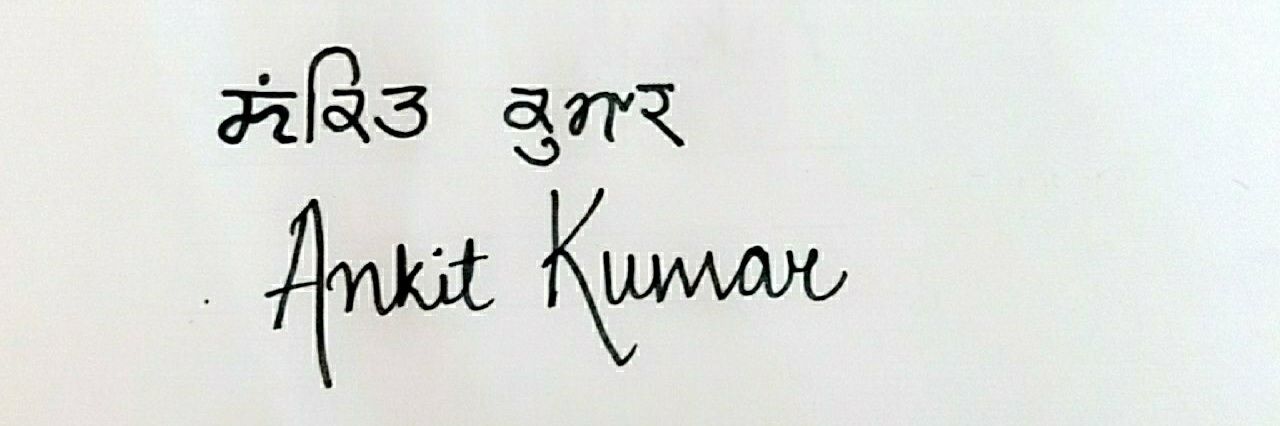 ਅੰਕਿਤ ਕੁਮਾਰ
Ankit Kumar